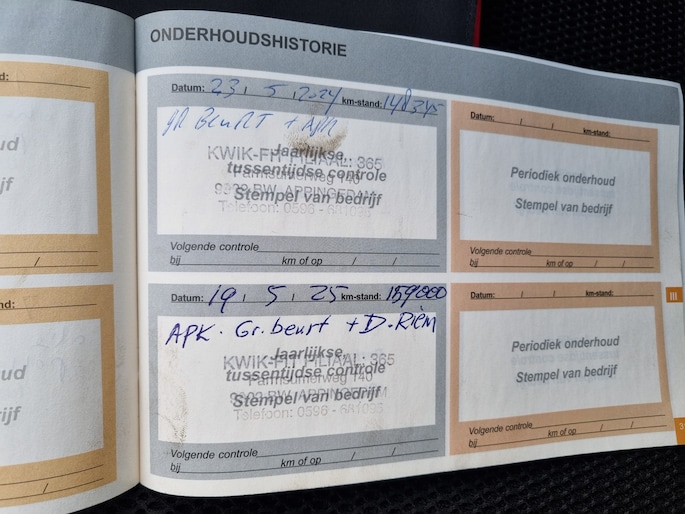 ONDERHOUDSHISTORIE
d:
ud
jf
/
Datum: 23 , 5 , 2024 km-stand: 148345
GR BEURT + APK
Jaarlijkse,
KWIK-FIT FILIAAL: 365
tussentijdse controle
Farmsumerweg 140
APPINGEDAM
Stempel van bedrijf
Telefoon: 0596 - 681095
Volgende controle
bij / / km of op
Datum: / / km-stand:
Periodiek onderhoud
Stempel van bedrijf
Volgende controle
bij km of op / /
nd:
ud
ijf
/
Datum: 19 , 5 , 25 km-stand: 159000
APK. Gr. beurt + D. RIEM
Jaarlijkse,
KWIK-FIT FILIAAL: 365
tussentijdse controle
Farmsumerweg 140
Stempel van bedrijf
Telefoon: 0596 - 681095
Volgende controle
bij km of op / /
Datum: / / km-stand:
Periodiek onderhoud
Stempel van bedrijf
Volgende controle
bij km of op / /
III